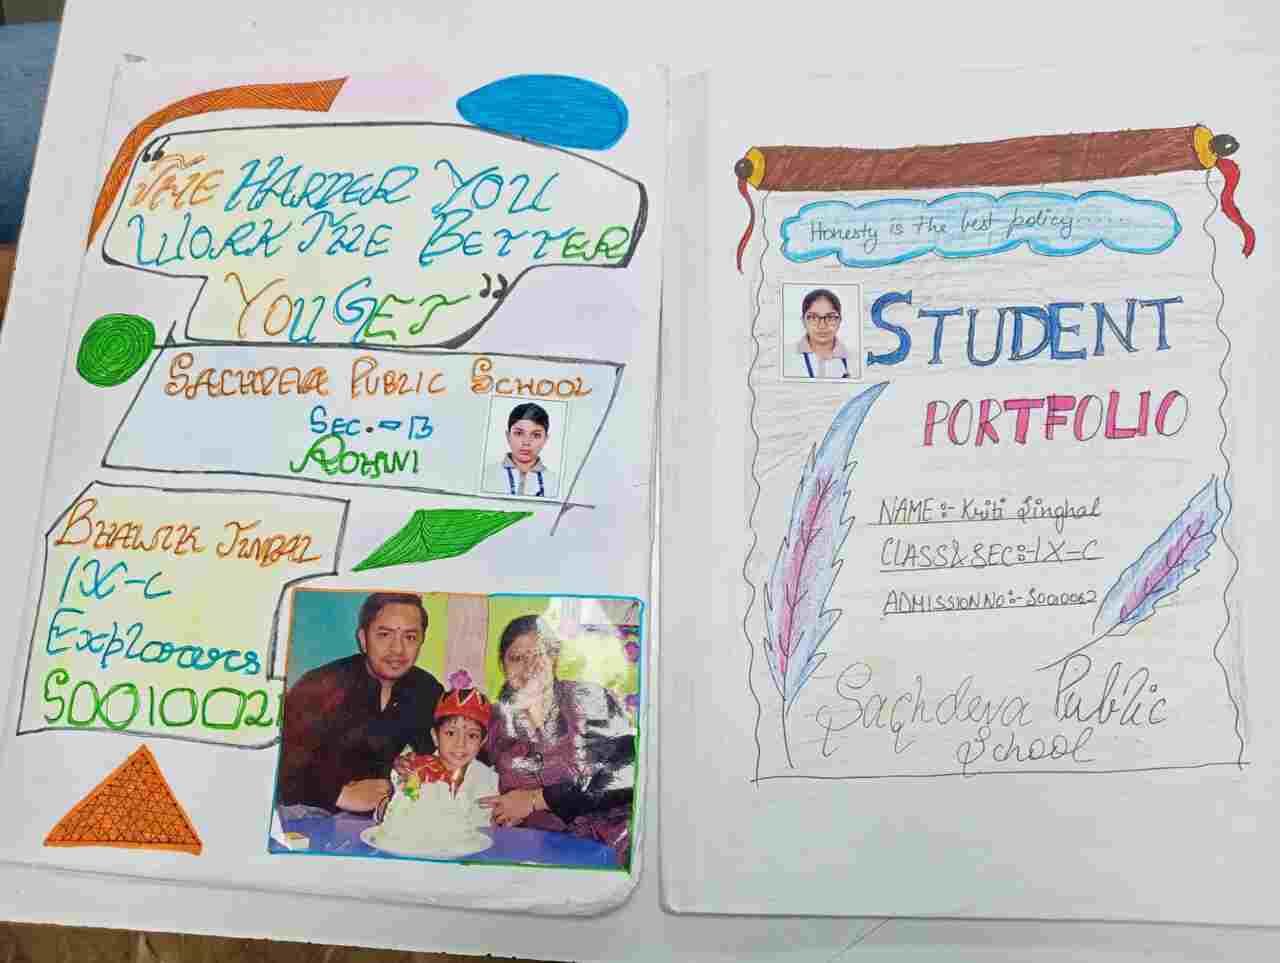 “THE HARDER YOU
WORK THE BETTER
YOU GET”
SACHDEVA PUBLIC SCHOOL
SEC.-13
ROHINI
BHAWIK JINDAL
IX-C
Explorers
S0010021
Honesty is the best policy......
STUDENT
PORTFOLIO
NAME:- Kriti Singhal
CLASS & SEC:- IX-C
ADMISSION NO:- S0010062
Sachdeva Public
School